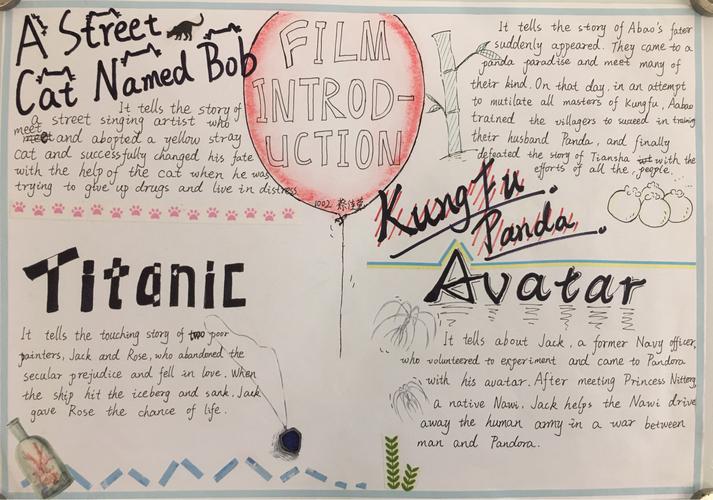 A Street
Cat Named Bob
It tells the story of
a street singing artist who
meet and abopted a yellow stray
cat and successfully changed his fate
with the help of the cat when he was
trying to give up drugs and live in distress.
FILM
INTROD-
UCTION
1002
It tells the story of Abao's fater
suddenly appeared. They came to a
panda paradise and meet many of
their kind. On that day, in an attempt
to mutilate all masters of Kungfu, Aabao
trained the villagers to succeed in training
their husband Panda, and finally
defeated the story of Tiansha with the
efforts of all the people.
Kung Fu
Panda.
Titanic
It tells the touching story of two poor
painters, Jack and Rose, who abandoned the
secular prejudice and fell in love. When
the ship hit the iceberg and sank, Jack
gave Rose the chance of life.
Avatar
It tells about Jack, a former Navy officer,
who volunteered to experiment and came to Pandora
with his avatar. After meeting Princess Nitterg,
a native Nawi, Jack helps the Nawi drive
away the human army in a war between
man and Pandora.